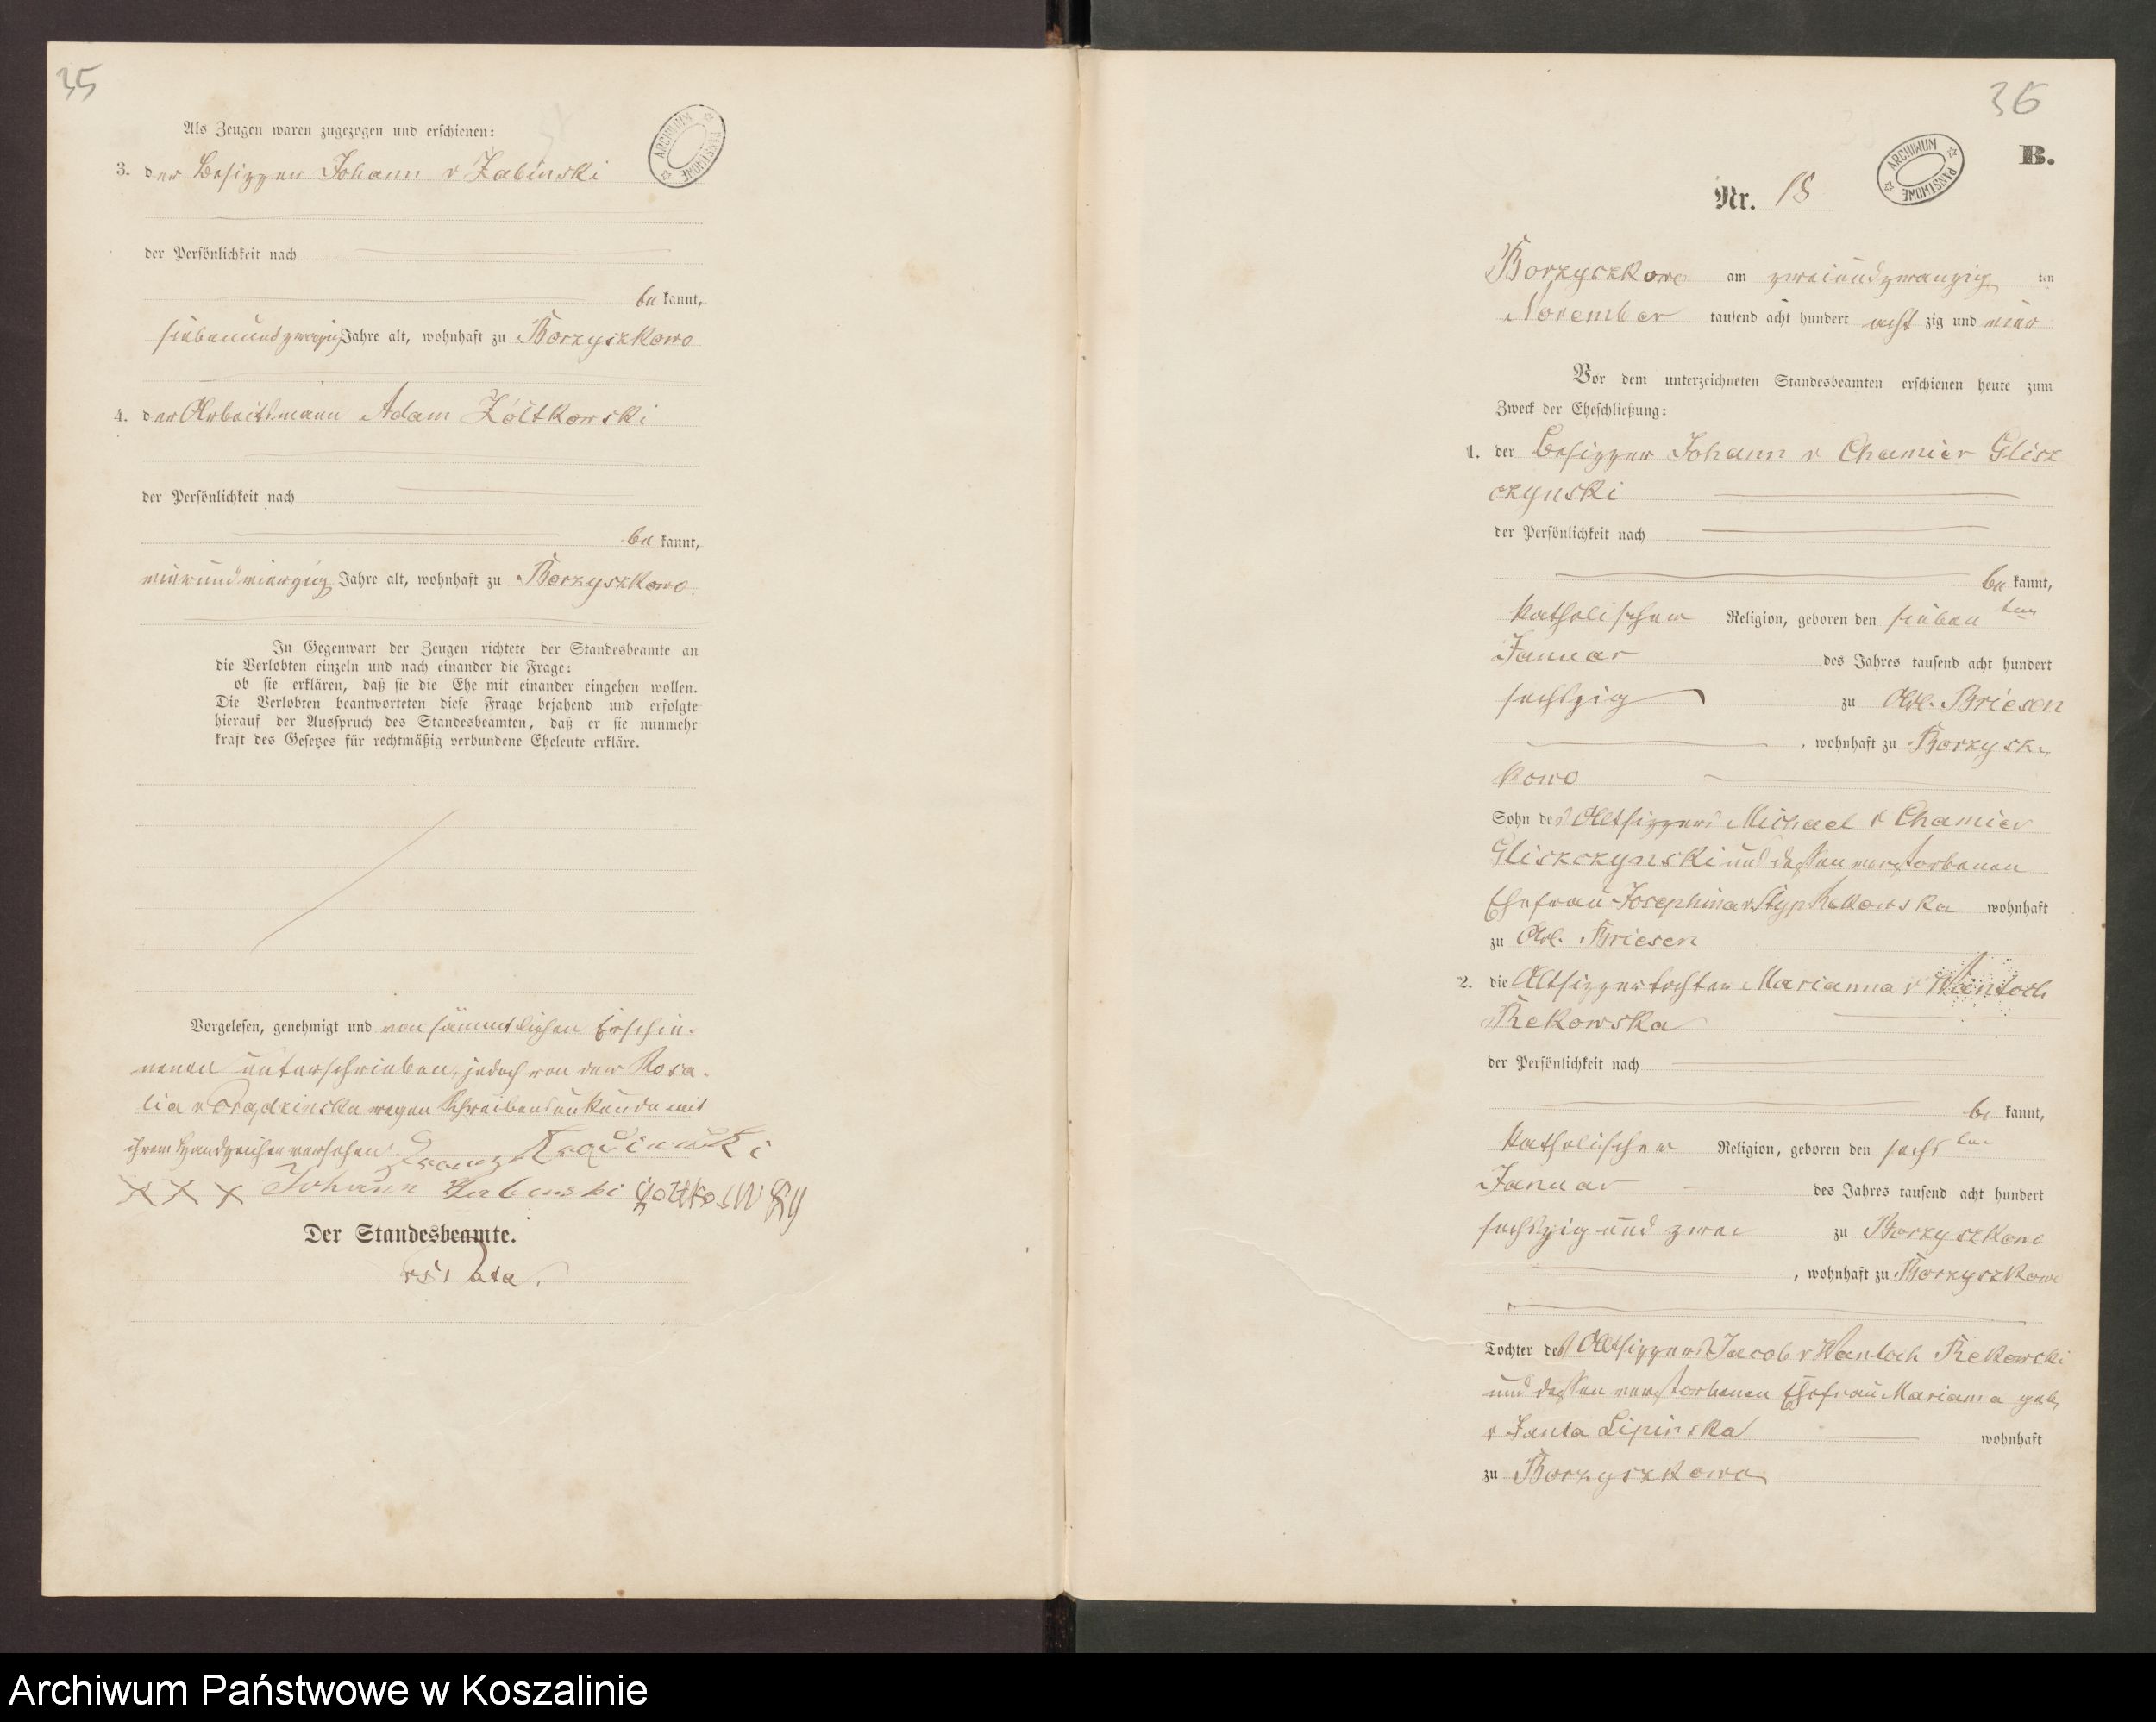 35
Als Zeugen waren zugezogen und erschienen:
3. der Besitzer Johann v Zabinski
der Persönlichkeit nach
be kannt,
siebenundzwanzig Jahre alt, wohnhaft zu Borzyszkowo
4. der Arbeitsmann Adam Żóltkowski
der Persönlichkeit nach
be kannt,
vierundvierzig Jahre alt, wohnhaft zu Borzyszkowo.
In Gegenwart der Zeugen richtete der Standesbeamte an
die Verlobten einzeln und nach einander die Frage:
ob sie erklären, daß sie die Ehe mit einander eingehen wollen.
Die Verlobten beantworteten diese Frage bejahend und erfolgte
hierauf der Ausspruch des Standesbeamten, daß er sie nunmehr
kraft des Gesetzes für rechtmäßig verbundene Eheleute erkläre.
Vorgelesen, genehmigt und von sämmtlichen Erschie-
nenen unterschrieben, jedoch von der Rosa-
lia v wegen Schreibensunkunde mit
ihrem Handzeichen versehen. Franz
X X X Johann Zabinski
Der Standesbeamte.
36
ARCHIWUM PAŃSTWOWE
ARCHIWUM PAŃSTWOWE
B.
Nr. 18
Borzyszkowo am zweiundzwanzig ten
November tausend acht hundert acht zig und vier
Vor dem unterzeichneten Standesbeamten erschienen heute zum
Zweck der Eheschließung:
1. der Besitzer Johann v Chamier Glisz
czynski
der Persönlichkeit nach
be kannt,
katholischer Religion, geboren den sieben ten
Januar des Jahres tausend acht hundert
sechszig zu Adl. Briesen
, wohnhaft zu Borzysz-
kowo
Sohn des Altsitzers Michael v Chamier
Gliszczynski und dessen verstorbenen
Ehefrau Josephina v Styp Rekowska wohnhaft
zu Adl. Briesen
2. die Altsitzertochter Marianna v Wantoch
Rekowska
der Persönlichkeit nach
be kannt,
katholischer Religion, geboren den sechs ten
Januar des Jahres tausend acht hundert
sechszig und zwei zu Borzyszkowo
, wohnhaft zu Borzyszkowo
Tochter des Altsitzers Jacob v Wantoch Rekowski
und dessen verstorbenen Ehefrau Marianna geb,
v Janta Lipinska wohnhaft
zu Borzyszkowo
Archiwum Państwowe w Koszalinie